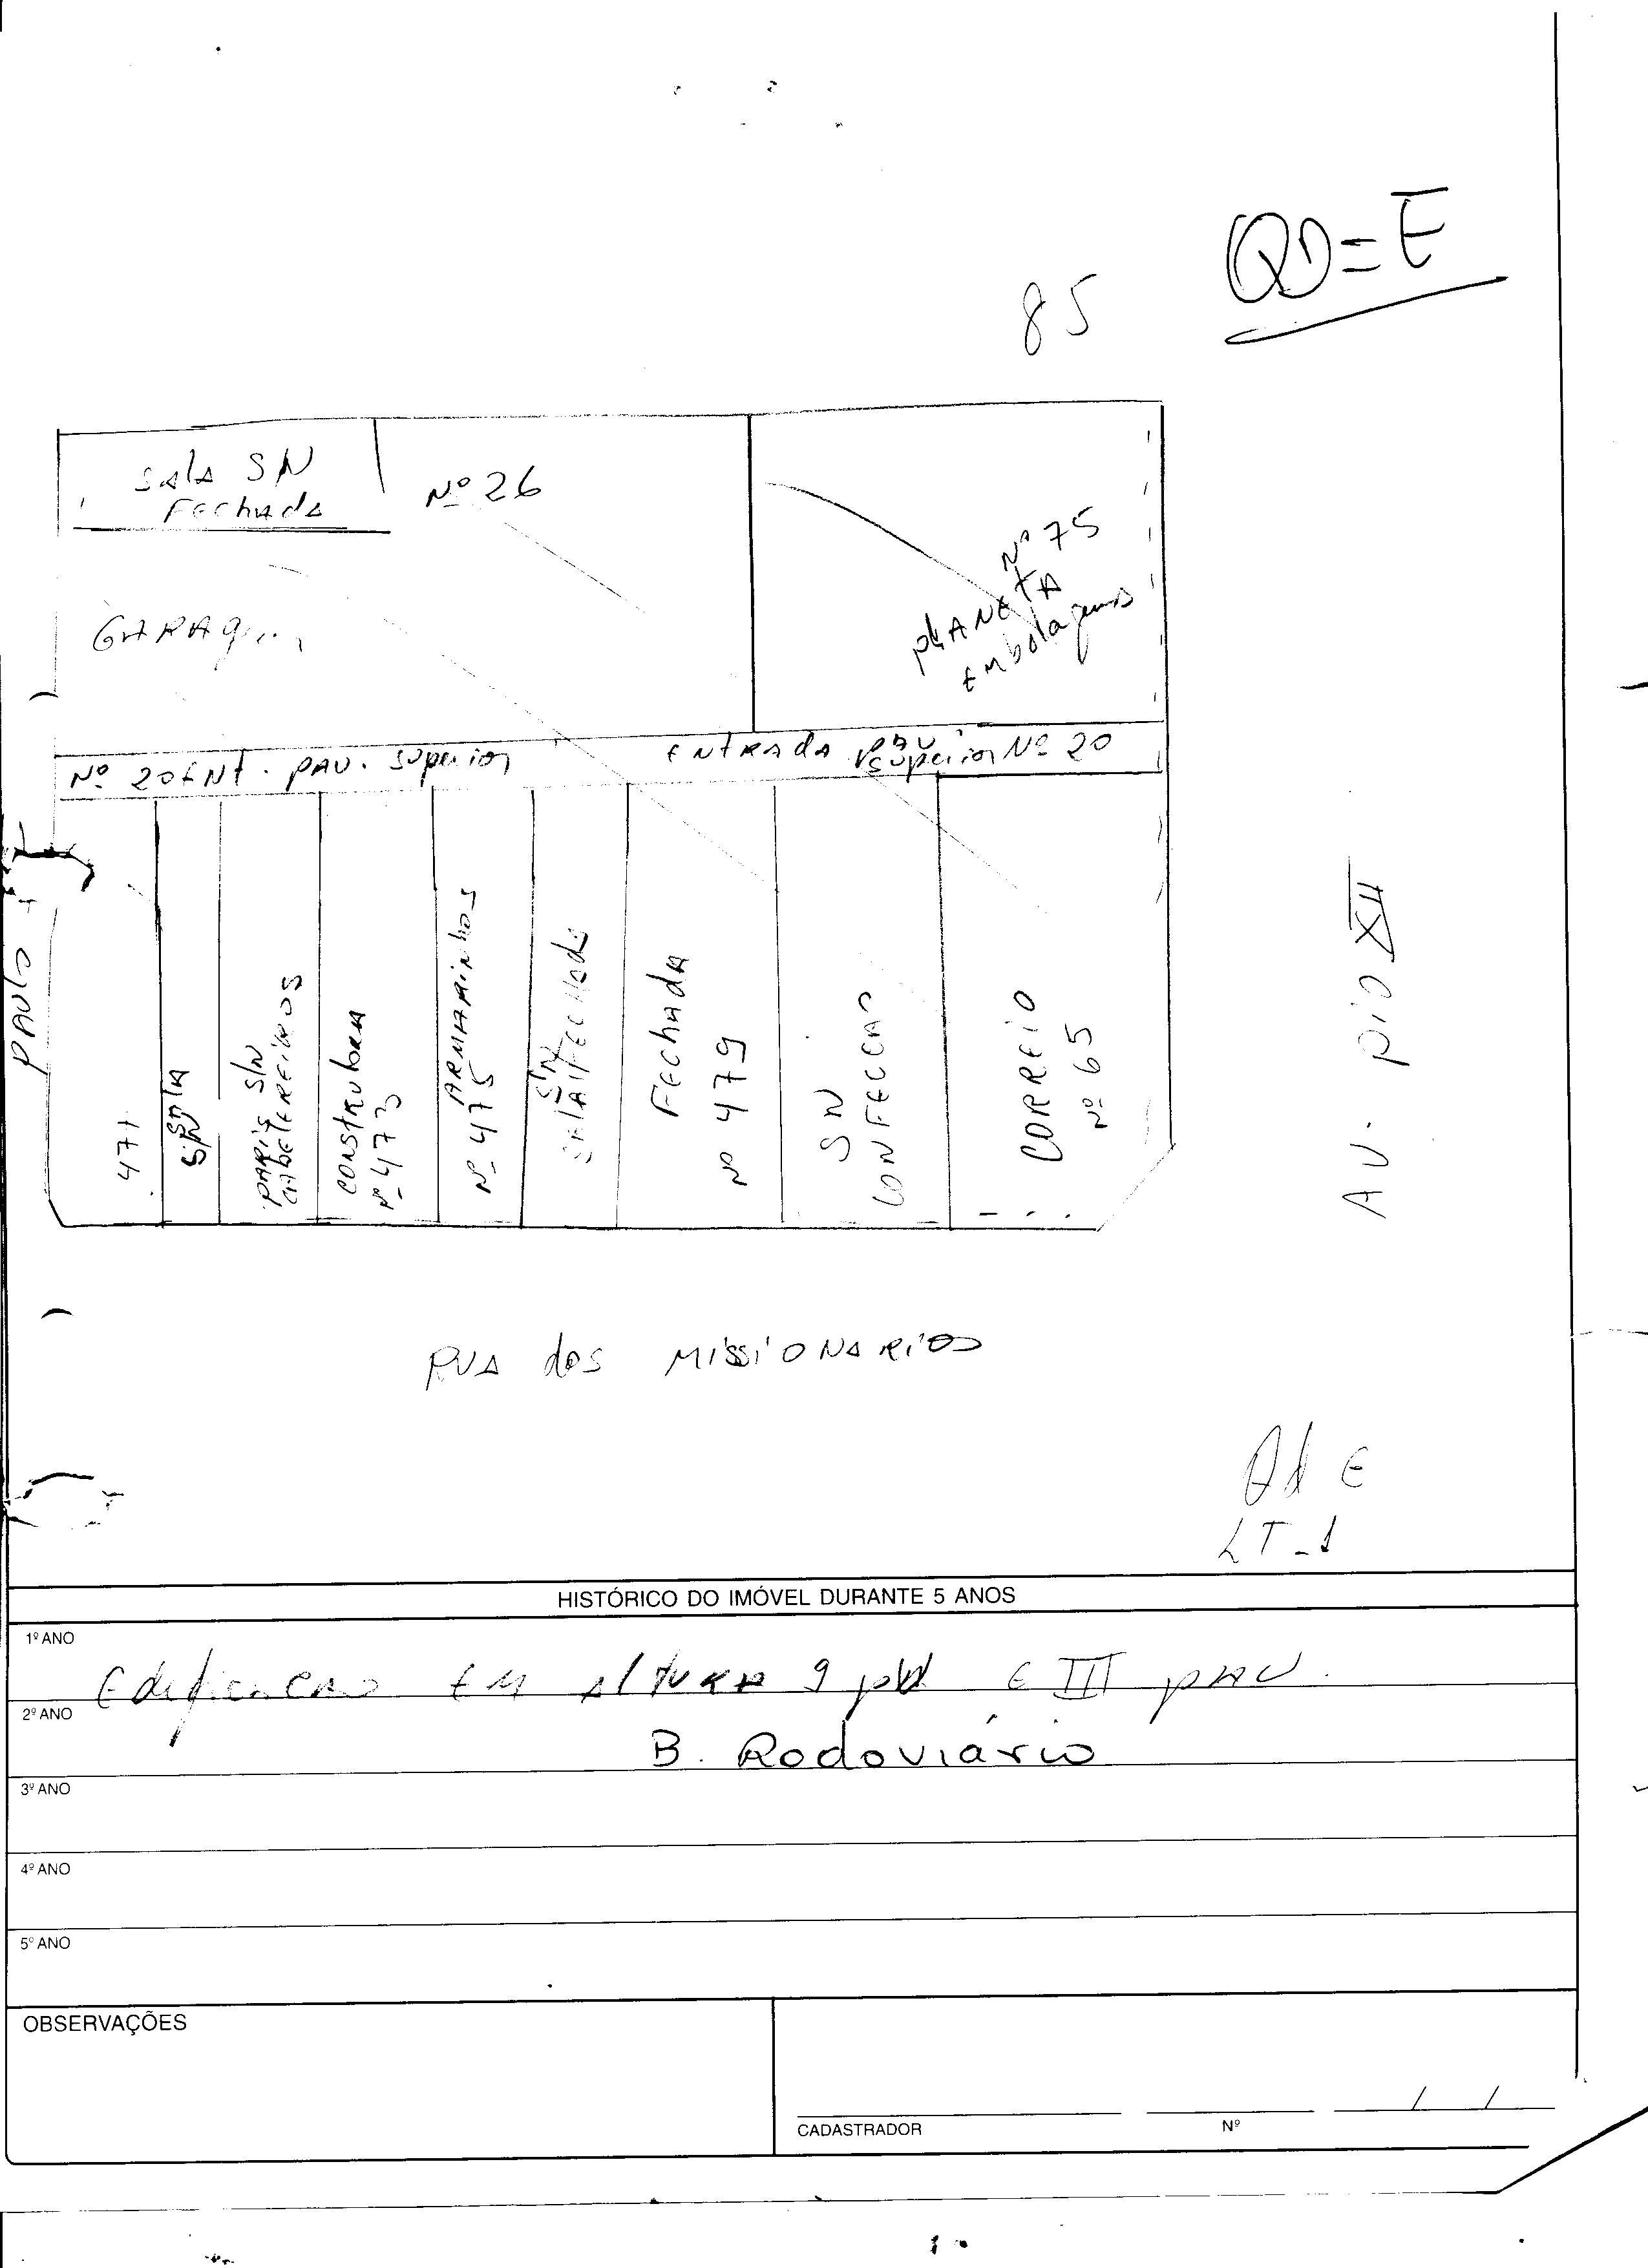 QD=E
85
Sala SN
Fechada
Nº 26
Nº 75
PLANETA
Embalagens
GARAg
Nº 20 ENt. PAV. Superior
ENtRAdA PAV
Superior Nº 20
471
Sala
S/N
PARIS S/N
CABELEREIROS
CONSTRUbem
Nº 473
ARMARINhos
Nº 475
S/N
SALA FEChAda
FEChAdA
Nº 479
SN
CONFECCAO
CORREIO
Nº 65
PAULO
AV. PIO XII
RUA dos MISSIONARIOS
Qd E
LT-1
HISTÓRICO DO IMÓVEL DURANTE 5 ANOS
1º ANO
Edificacao EM AlTURA 9 E III PAV.
2º ANO
B. Rodoviário
3º ANO
4º ANO
5º ANO
OBSERVAÇÕES
/ /
CADASTRADOR
Nº